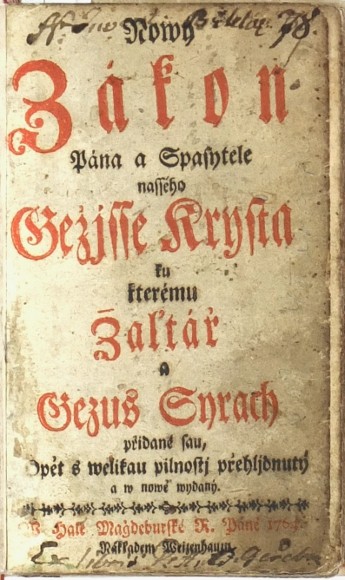 Nowý
Zákon
Pána a Spasytele
nasseho
Gežjsse Krysta
ku
kterému
Žaltář
a
Gezus Syrach
přidané sau,
Opět s welikau pilnostj přehljdnutý
a w nowě wydaný.
Hale Magdeburské R. Páně
Nákladem Weizenhausu